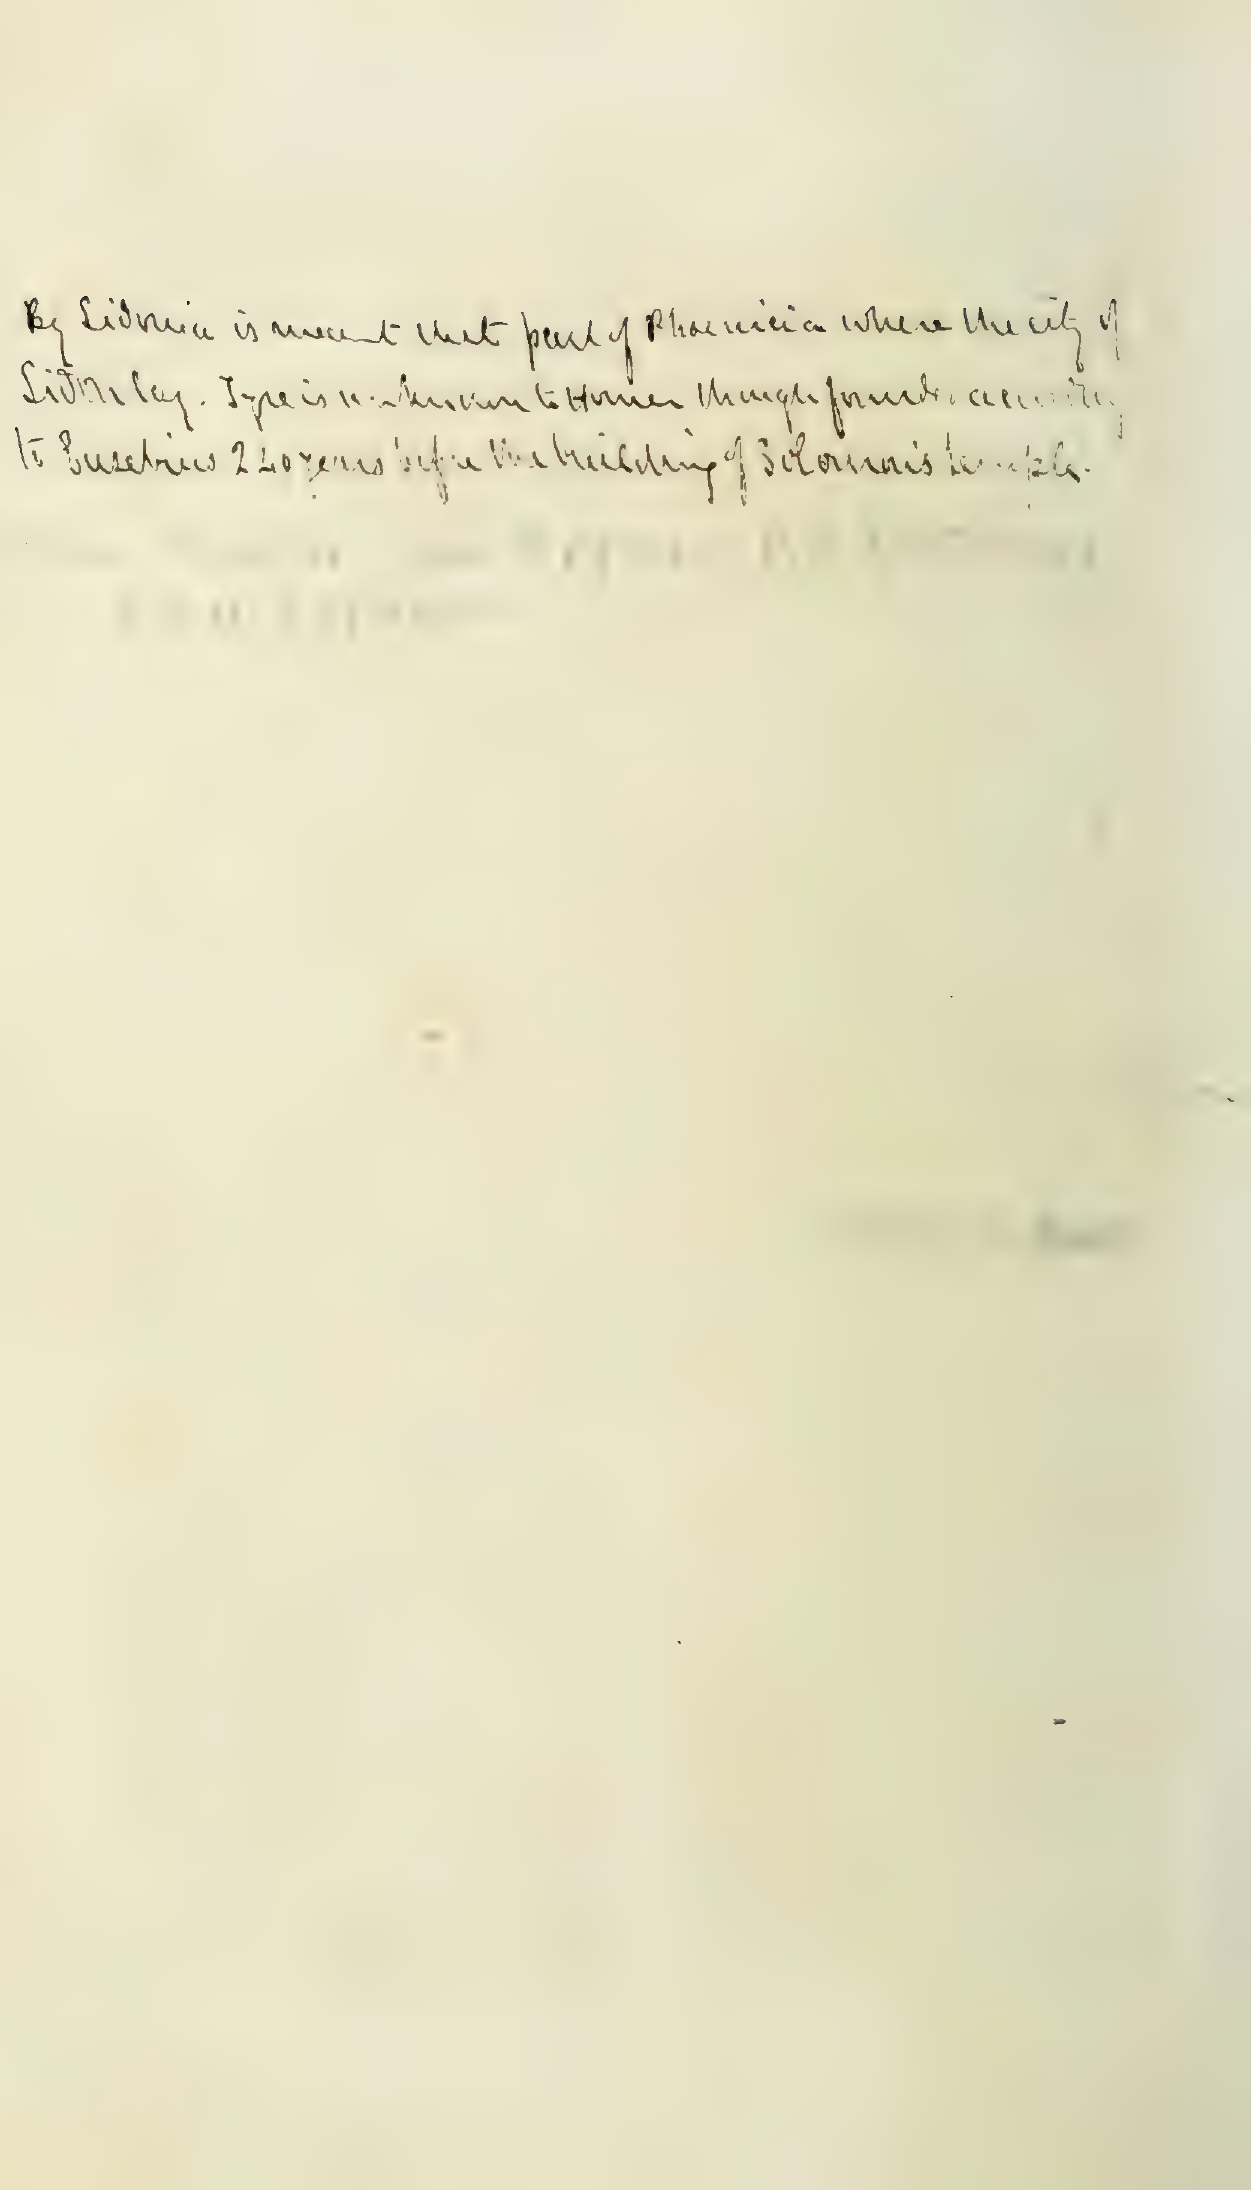 By Sidonia is meant that part of Phoenicia where the city of
Sidon lay. Tyre is unknown to Homer though founded according
to Eusebius 240 years before the building of Solomon's temple.